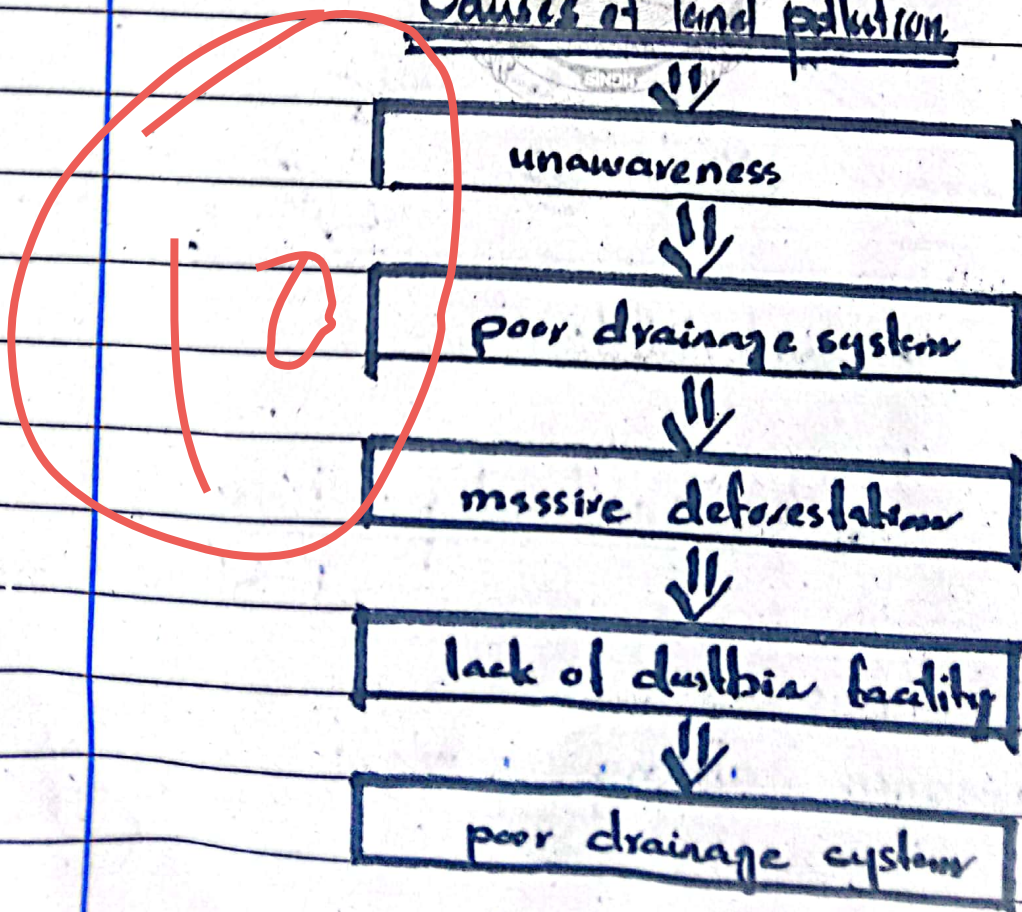 Causes of land pollution
SINDH
unawareness
10
poor drainage system
massive deforestation
lack of dustbin facility
poor drainage system